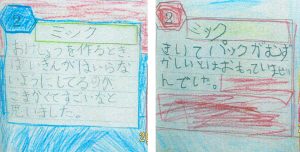 2
ミック
おけしょうを作るとき
ばいきんがはいらな
いようにしてるのが
こまかくてすごいなと
思いました。
2
ミック
まいてパックがむず
かしいとはおもっていませ
んでした。